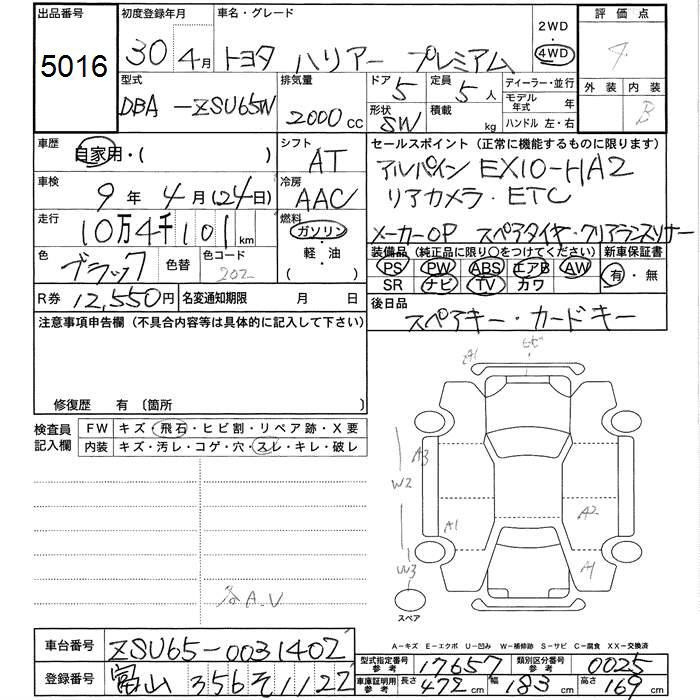 出品番号
5016
初度登録年月
30 4月
車名・グレード
トヨタ ハリアー プレミアム
2WD
・
4WD
評価点
4
外装 内装
B
型式
DBA-ZSU65W
排気量
2000 cc
ドア 5
形状 SW
定員 5 人
積載 kg
ディーラー・並行
モデル年式 年
ハンドル 左・右
車歴
自家用・( )
シフト
AT
セールスポイント (正常に機能するものに限ります)
アルパイン EX10-HA2
リアカメラ・ETC
メーカーOP スペアタイヤ・クリアランスソナー
車検
9年 4月(24日)
冷房
AAC
走行
10万4千101km
燃料
ガソリン
・
軽・油
( )
色
ブラック
色替
色コード
202
装備品 (純正品に限り〇をつけてください)
PS PW ABS エアB AW
SR ナビ TV カワ
新車保証書
有・無
R券 12,550円
名変通知期限 月 日
後日品
スペアキー・カードキー
注意事項申告欄 (不具合内容等は具体的に記入して下さい)
修復歴 有 〔箇所
検査員記入欄
FW キズ・飛石・ヒビ割・リペア跡・X要
内装 キズ・汚レ・コゲ・穴・スレ・キレ・破レ
A1
A3
W2
A1
A2
W3
A1
スペア
A.V
A-キズ E-エクボ U-凹み W-補修跡 S-サビ C-腐食 XX-交換済
車台番号
ZSU65-0031402
登録番号
富山 356 そ 1122
型式指定番号 参考
17657
類別区分番号 参考
0025
車庫証明用 参考
長さ 472 cm
幅 183 cm
高さ 169 cm